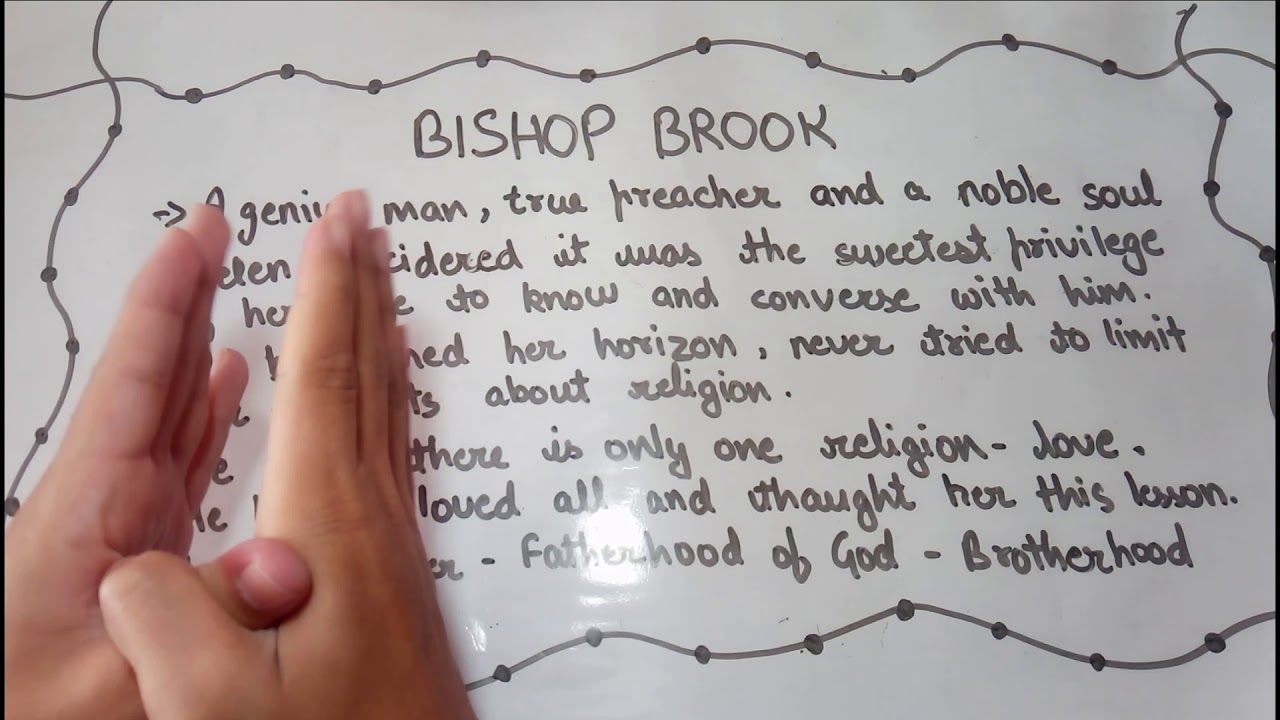 BISHOP BROOK
→ A man, true preacher and a noble soul
it was the sweetest privilege
to know and converse with him.
her horizon, never tried to limit
about religion.
there is only one religion- love.
loved all and thaught her this lesson.
- Fatherhood of God - Brotherhood